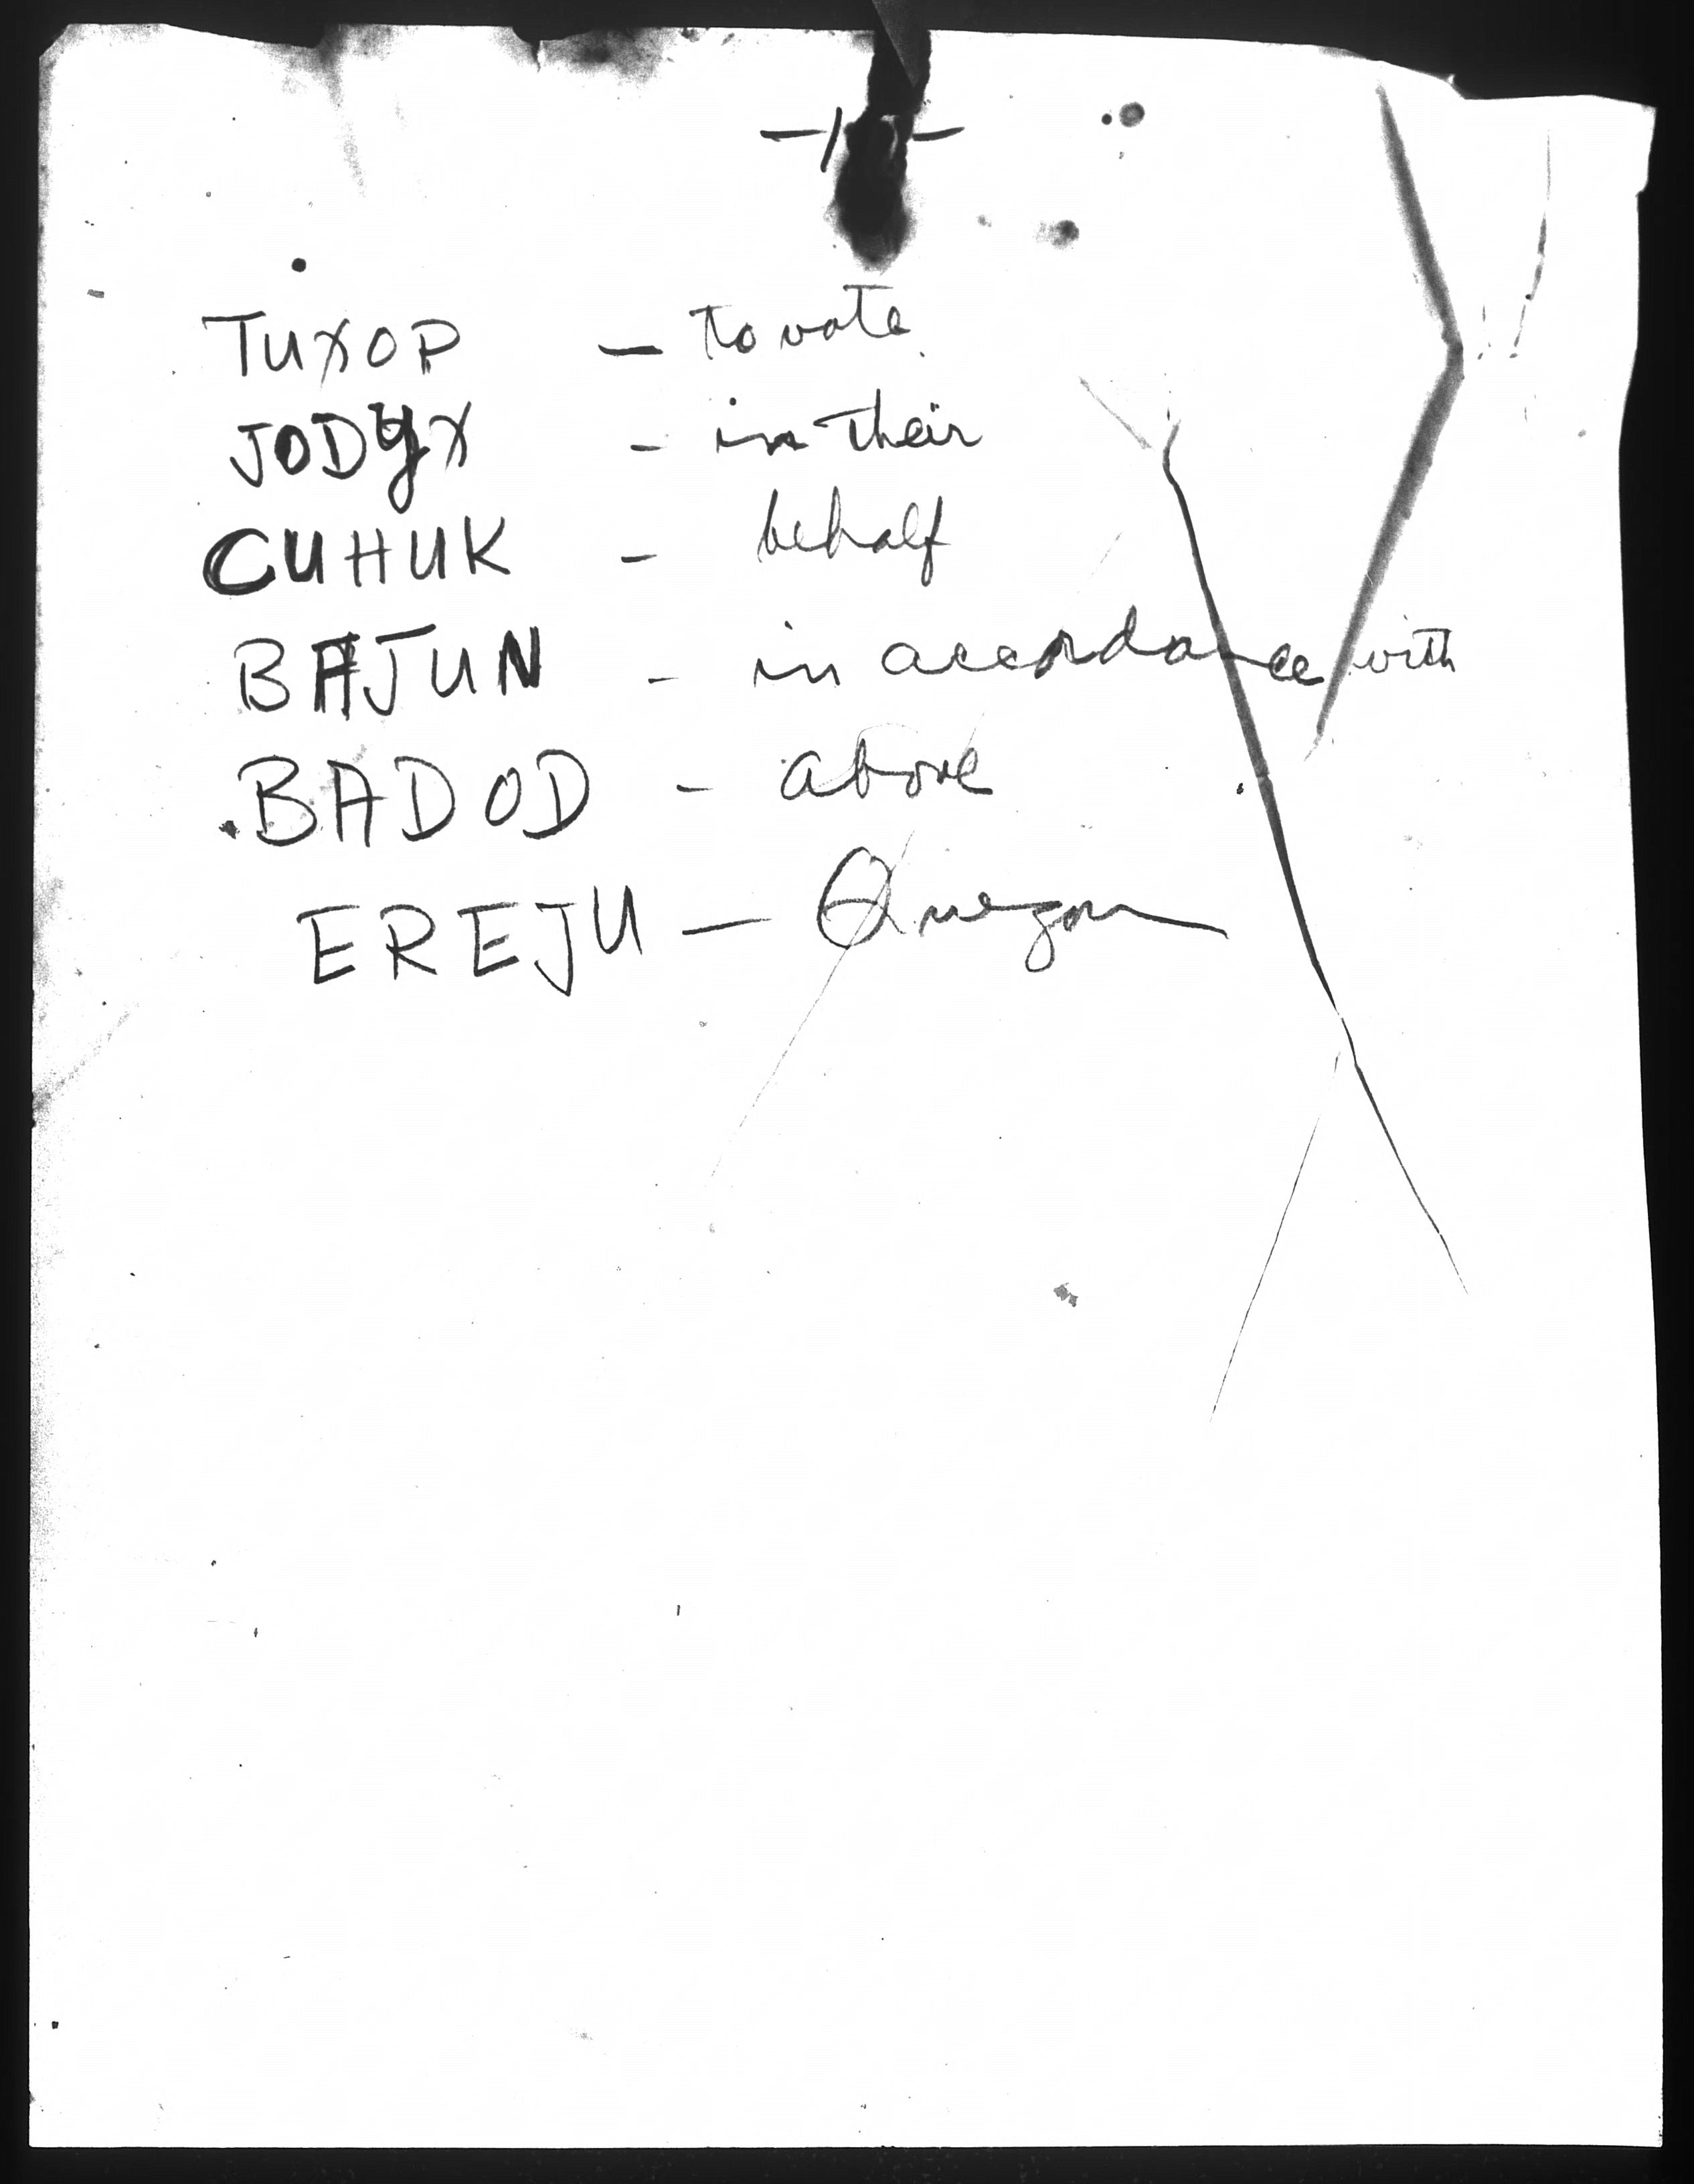 TUXOP — to vote
JODYX - in their
CUHUK - behalf
BAJUN - in accordance with
BADOD - above
EREJU — Quezon